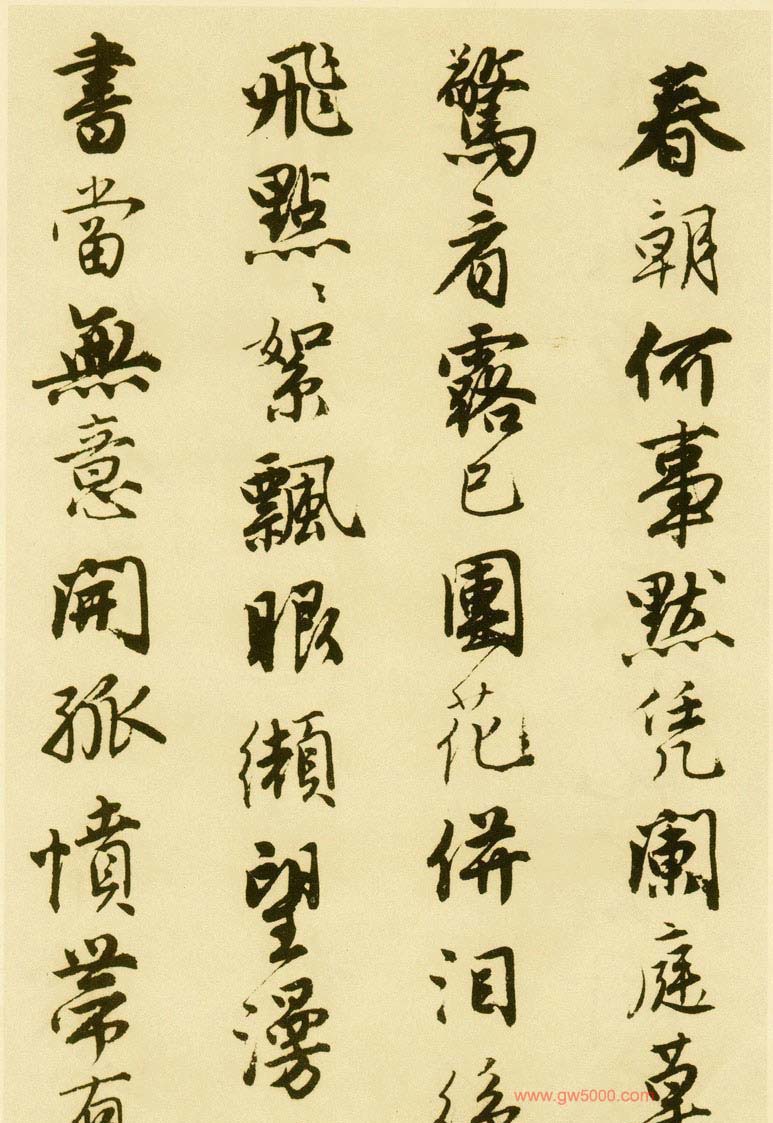 春朝何事默凭闌庭草
驚看露已團花併泪
飛點〻絮飄眼纈望漫
書當無意開孤憤帶有
www.gw5000.com